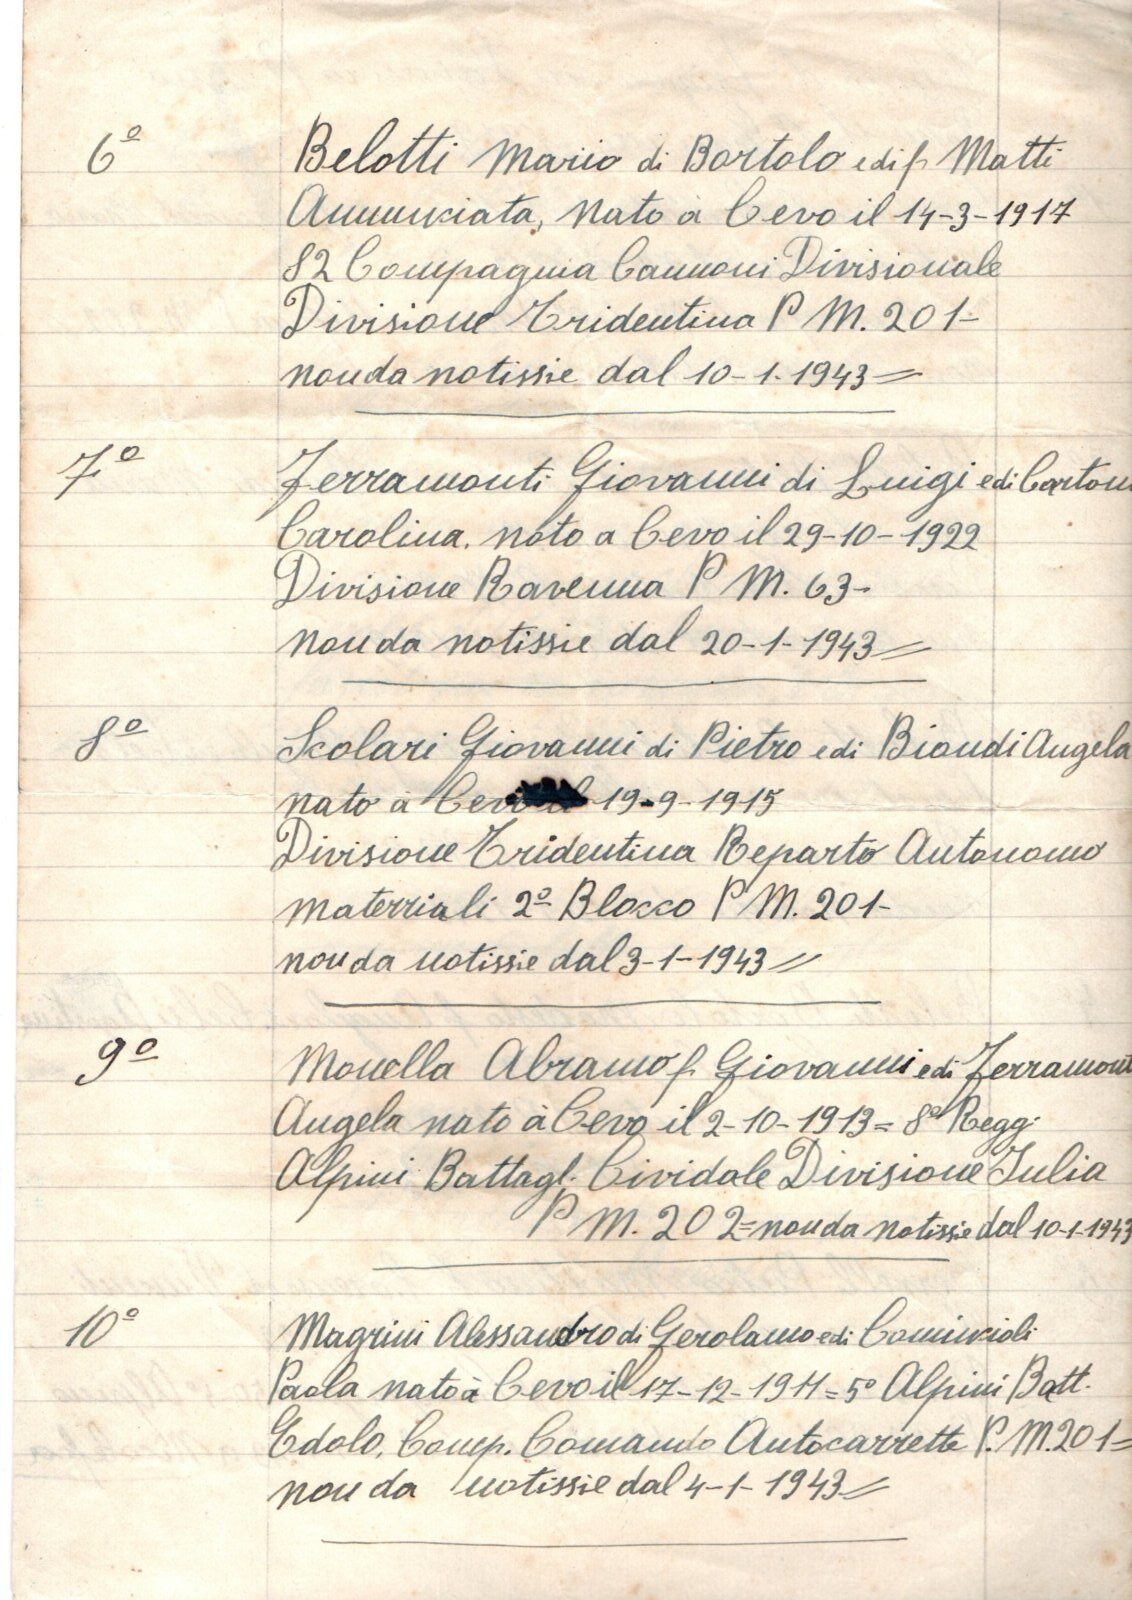 6º
Belotti Mario di Bortolo e di f. Matti
Annunciata, nato à Cevo il 14-3-1917
82 Compagnia Cannoni Divisionale
Divisione Tridentina P M. 201-
non da notissie dal 10-1-1943=
7º
Ferramonti Giovanni di Luigi e di
Carolina. nato a Cevo il 29-10-1922
Divisione Ravenna P M. 63-
non da notissie dal 20-1-1943=
8º
Scolari Giovanni di Pietro e di Biondi Angela
nato à Cevo 19-9-1915
Divisione Tridentina Reparto Autonomo
materriali 2º Blocco P M. 201-
non da notissie dal 3-1-1943=
9º
Monella Abramo f. Giovanni e di Ferramont
Angela nato à Cevo il 2-10-1913= 8º Regg.
Alpini Battagl. Cividale Divisione Iulia
P M. 202= non da notissie dal 10-1-1943
10º
Magrini Alessandro di Gerolamo e di Comincioli
Paola nato à Cevo il 17-12-1911= 5º Alpini Batt.
Edolo, Comp. Comando Autocarrette P. M. 201=
non da notissie dal 4-1-1943=